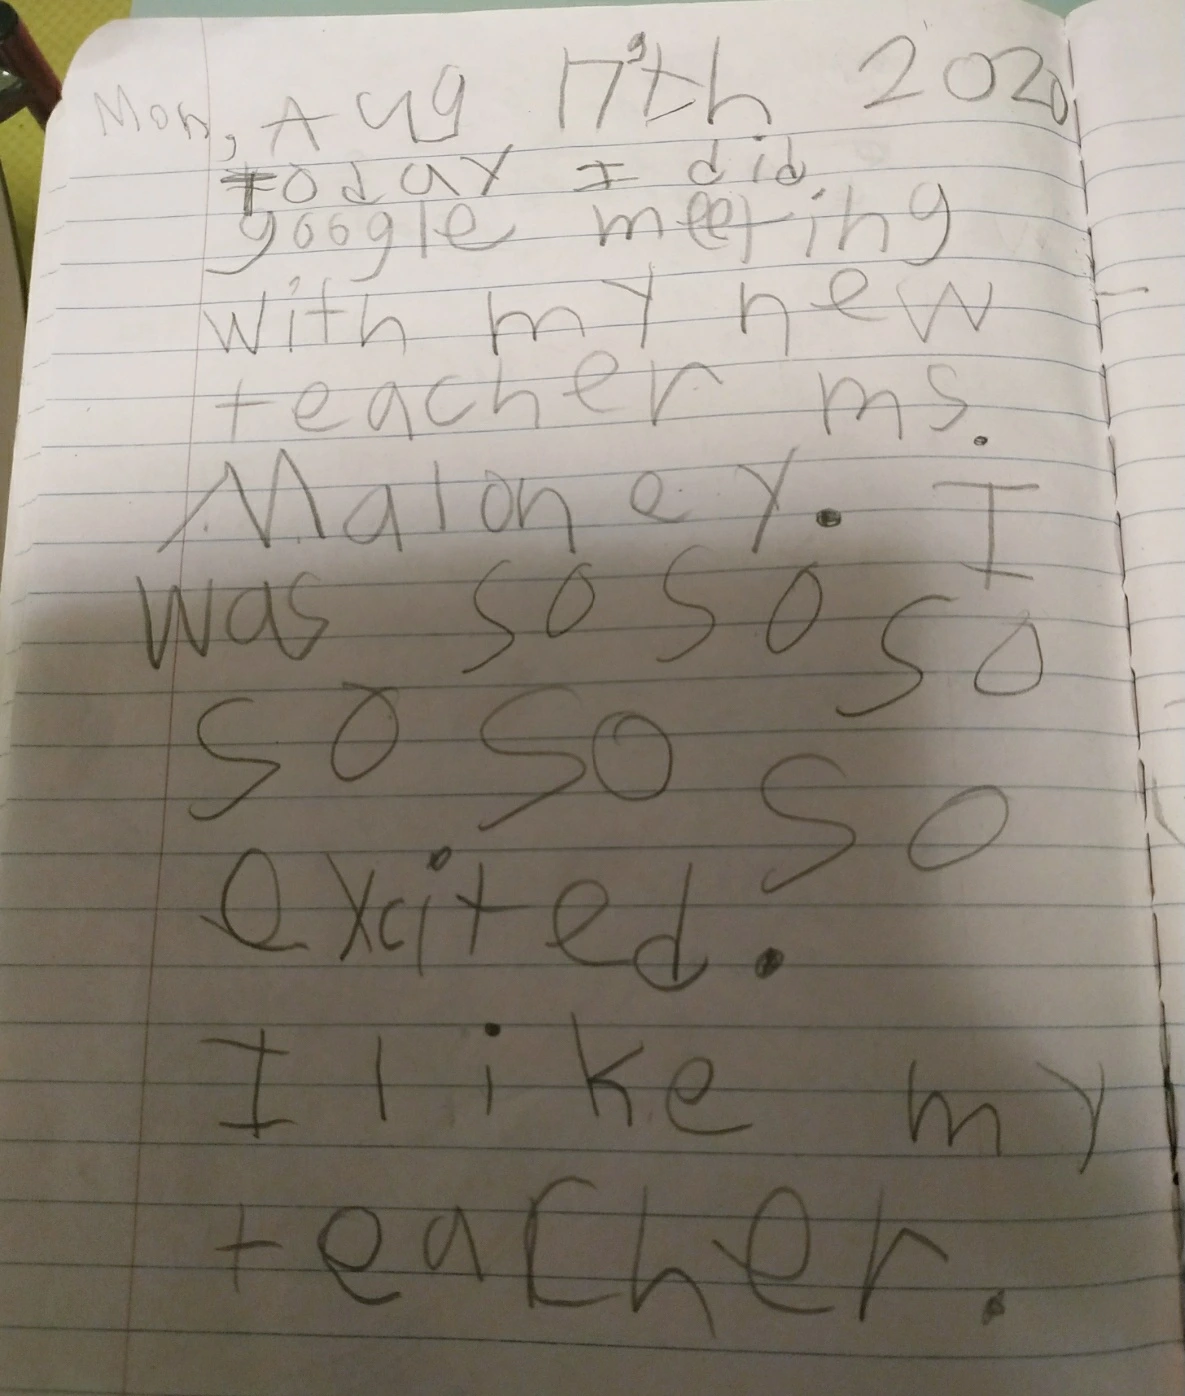 Mon, Aug 17th 2020
Today I did
google meeting
with my new
teacher ms.
Maloney. I
was so so so
so so so
excited.
I like my
teacher.